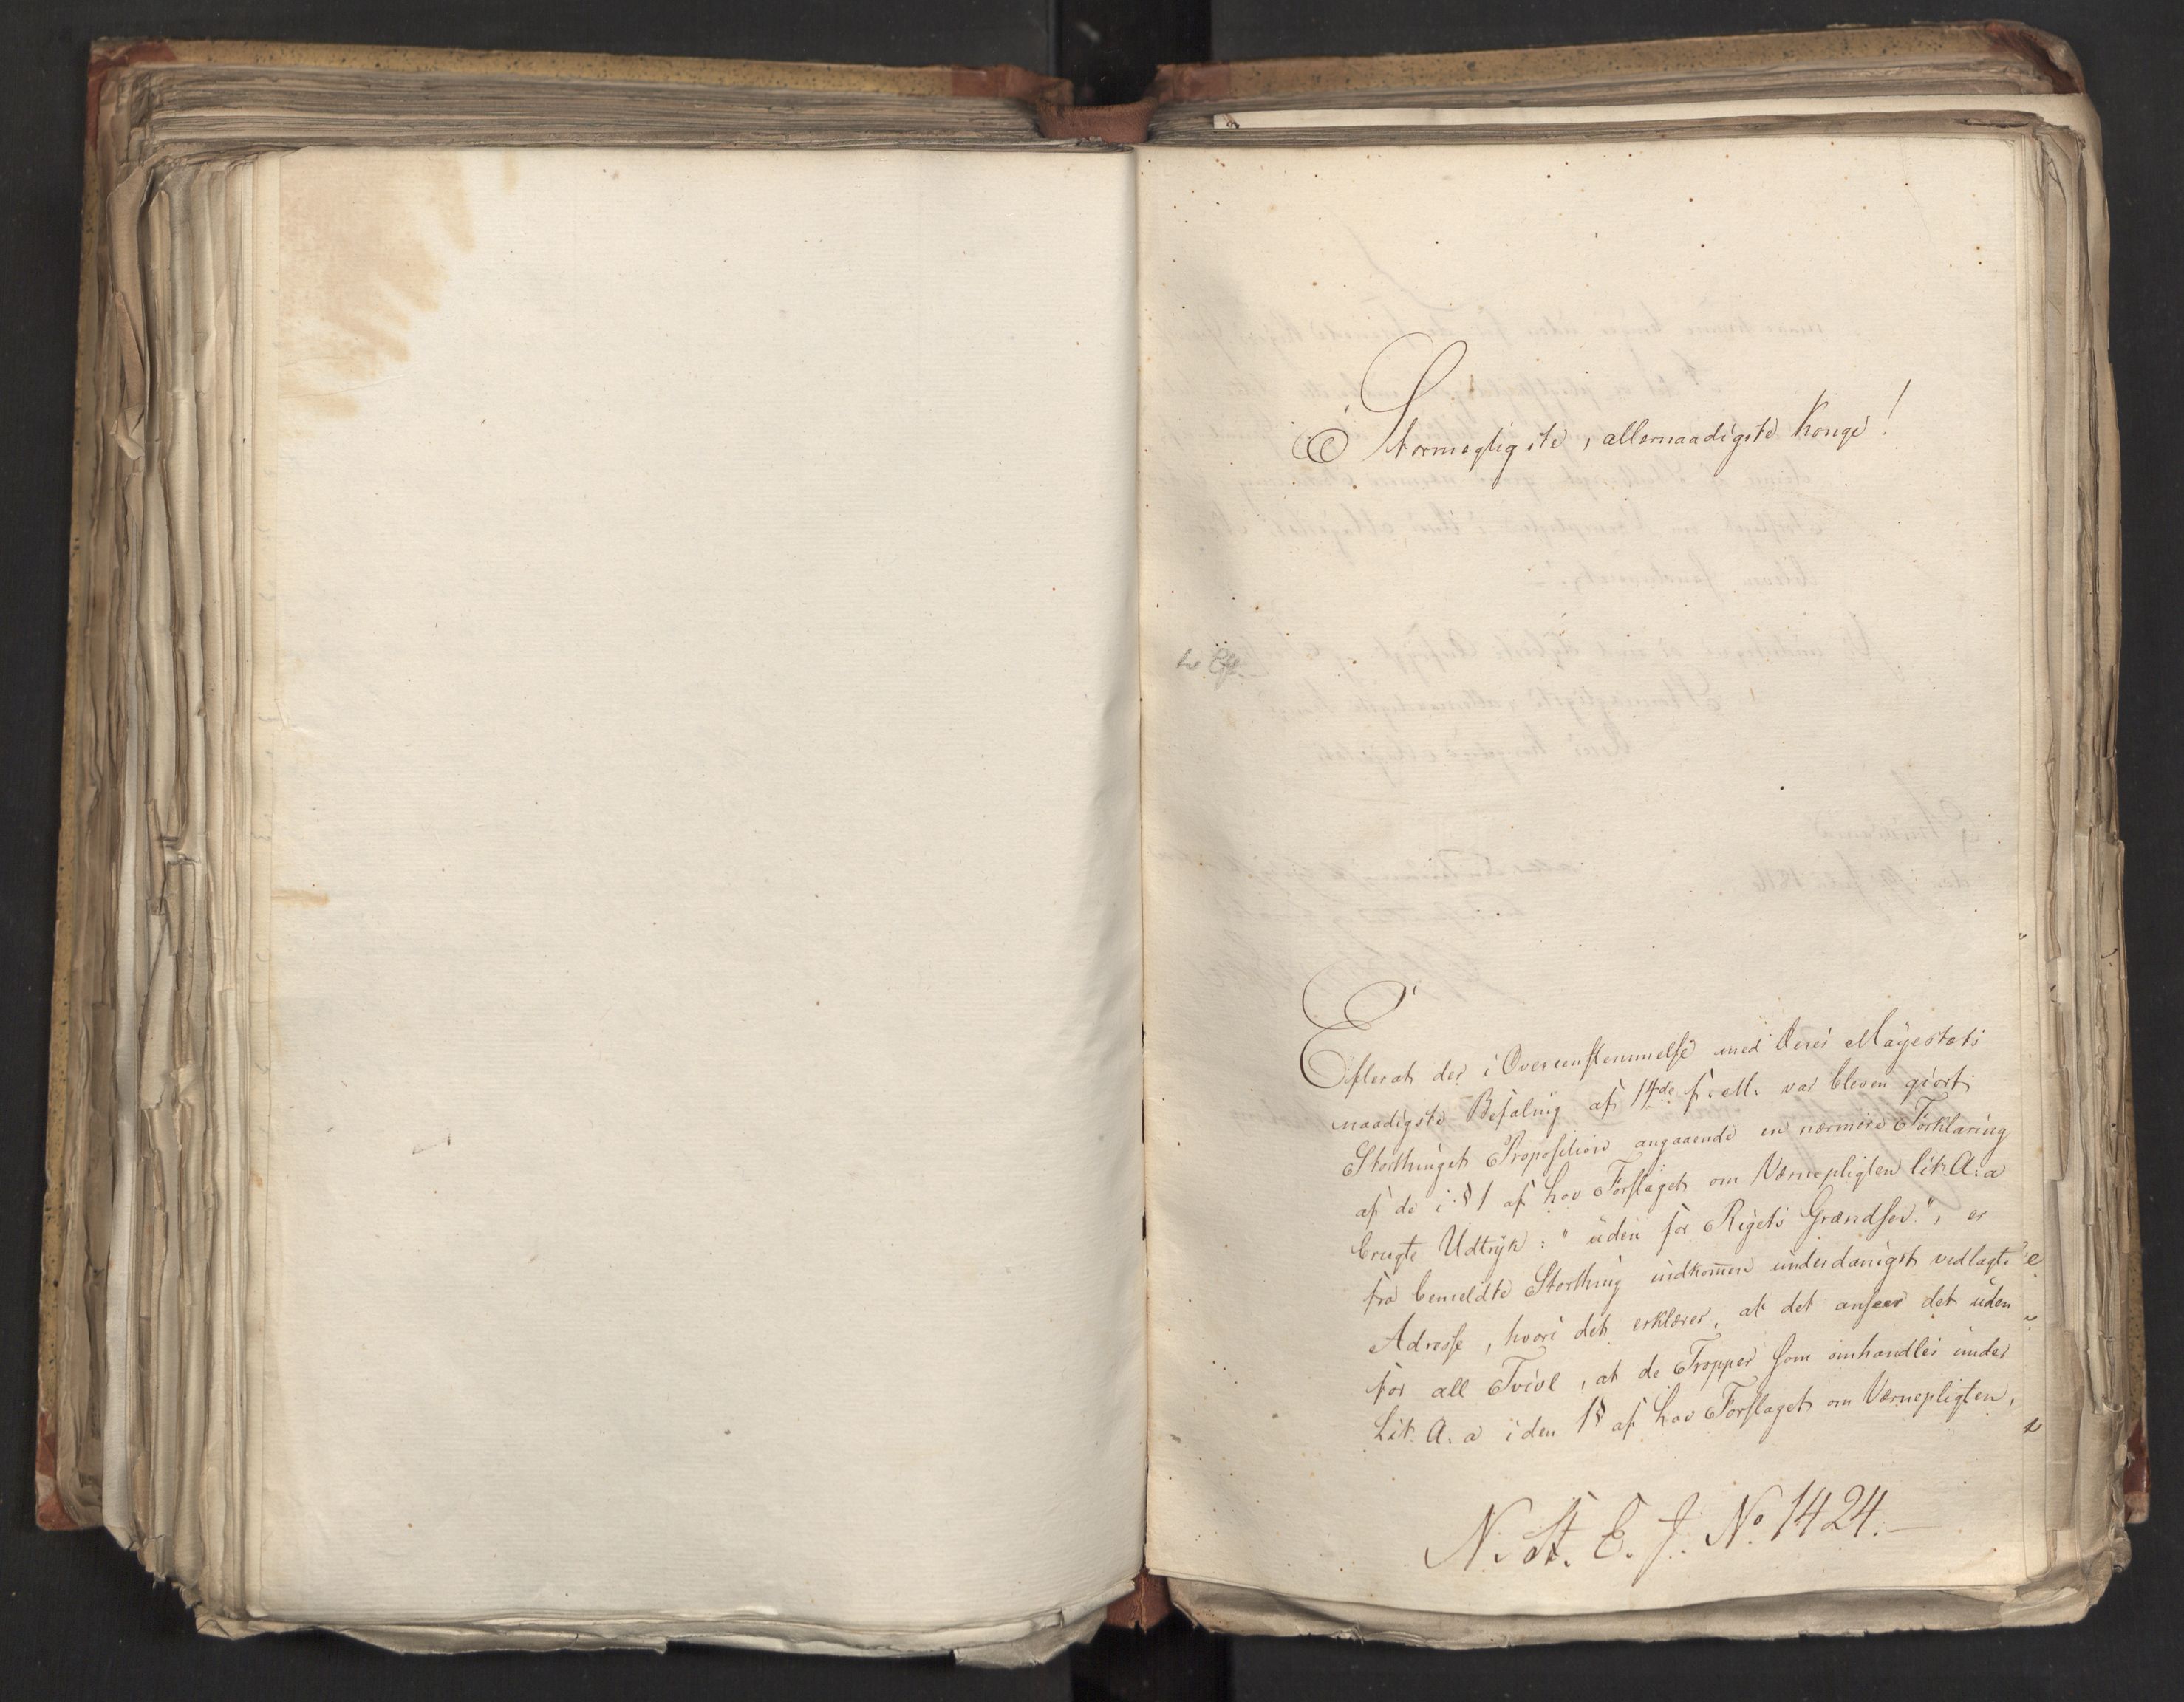 Stormægtigste, allernaadigste Konge!
Efterat der i Overeenstemmelse med Deres Majestæts
naadigste Befaling af 14de f. M. var bleven giort
Storthinget Proposition angaaende en nærmere Forklaring
af de i § 1 af Lov Forslaget om Værnepligten Lit. A. a
brugte Udtryk: "uden for Rigets Grændser.", er
fra bemeldte Storthing indkom̅en underdanigst vedlagte
Adresse, hvori det erklærer, at det anseer det uden
for all Tvivl, at de Tropper som omhandles under
Lit. A. a i den 1 § af Lov Forslaget om Værnepligten,
N. St. E. J. No 1424.